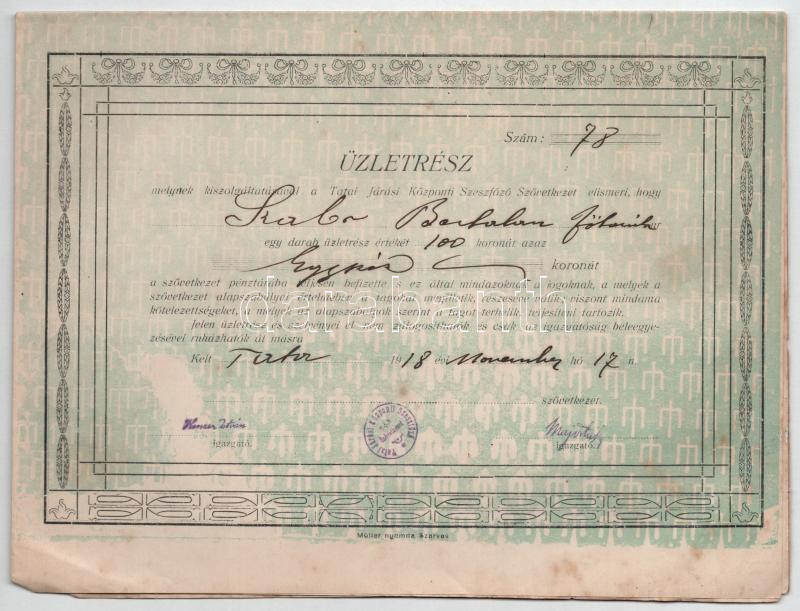 Szám: 78
ÜZLETRÉSZ
melynek kiszolgáltatásával a Tatai Járási Központi Szeszfőző Szövetkezet elismeri, hogy
Szabo Bertalan
egy darab üzletrész értékét 100 koronát azaz
koronát
a szövetkezet pénztárába teljesen befizette s ez által mindazoknak a jogoknak, a melyek a
szövetkezet alapszabályai értelmében a tagokat megilletik, részesévé válik, viszont mindama
kötelezettségeket, a melyek az alapszabályok szerint a tagot terhelik, teljesíteni tartozik.
Jelen üzletrész és szelvényei el nem zálogosíthatók és csak az igazgatóság beleegye-
zésével ruházhatók át másra
Kelt Tata 1918 évi November hó 17 n.
szövetkezet.
igazgató. igazgató.
Müller nyomda Szarvas
darabanth